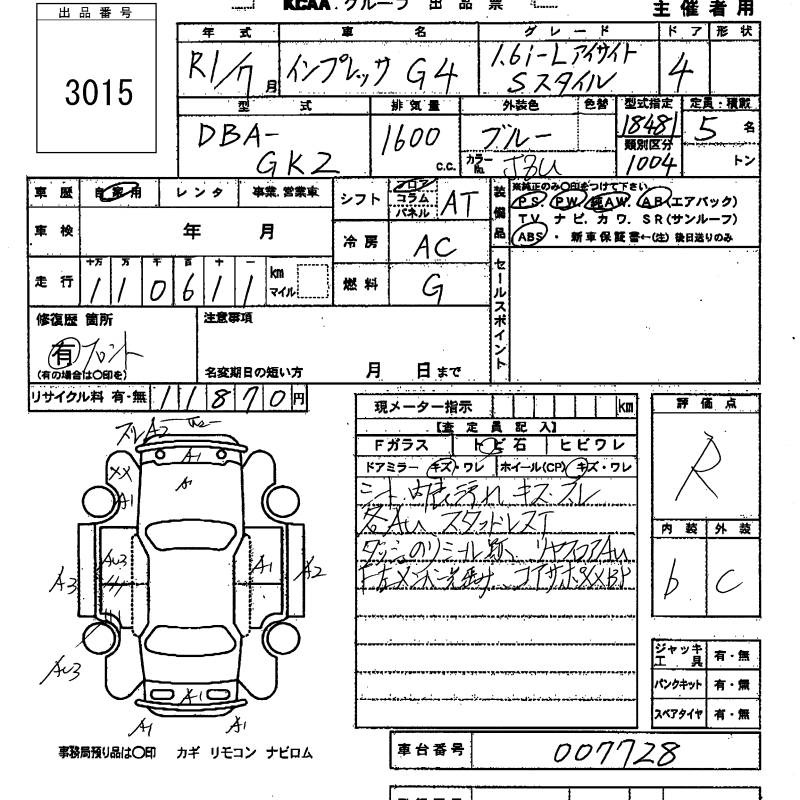 KCAA グループ 出品票
主催者用
出品番号
3015
年式 車名 グレード ドア 形状
R1/7月 インプレッサ G4 1.6i-Lアイサイト Sスタイル 4
型式 排気量 外装色 色替 型式指定 定員・積載
DBA-GK2 1600 c.c. ブルー 18481 5名
カラーNo. 類別区分 1004 トン
車歴 自家用 レンタ 事業.営業車
シフト フロア コラム パネル AT
装備品 ※純正のみ〇印をつけて下さい
PS. PW. 純AW. AB(エアバック)
TV. ナビ. カワ. SR(サンルーフ)
ABS ・ 新車保証書←(注) 後日送りのみ
車検 年 月
冷房 AC
走行 十万 万 千 百 十 一 km マイル
110611
燃料 G
セールスポイント
修復歴 箇所
有 フロント
(有の場合は〇印を)
注意事項
名変期日の短い方 月 日まで
リサイクル料 有・無 11870円
現メーター指示 km
【査定員記入】
Fガラス トビ石 ヒビワレ
ドアミラー キズ・ワレ ホイール(CP) キズ・ワレ
キズ・スレ
各AU スタッドレスT
評価点
R
内装 外装
b C
A2
A1
A1
XX
A1
AU3
A1
A3
A2
AU3
A1
A1
A1
ジャッキ工具 有・無
パンクキット 有・無
スペアタイヤ 有・無
事務局預り品は〇印 カギ リモコン ナビロム
車台番号 007728